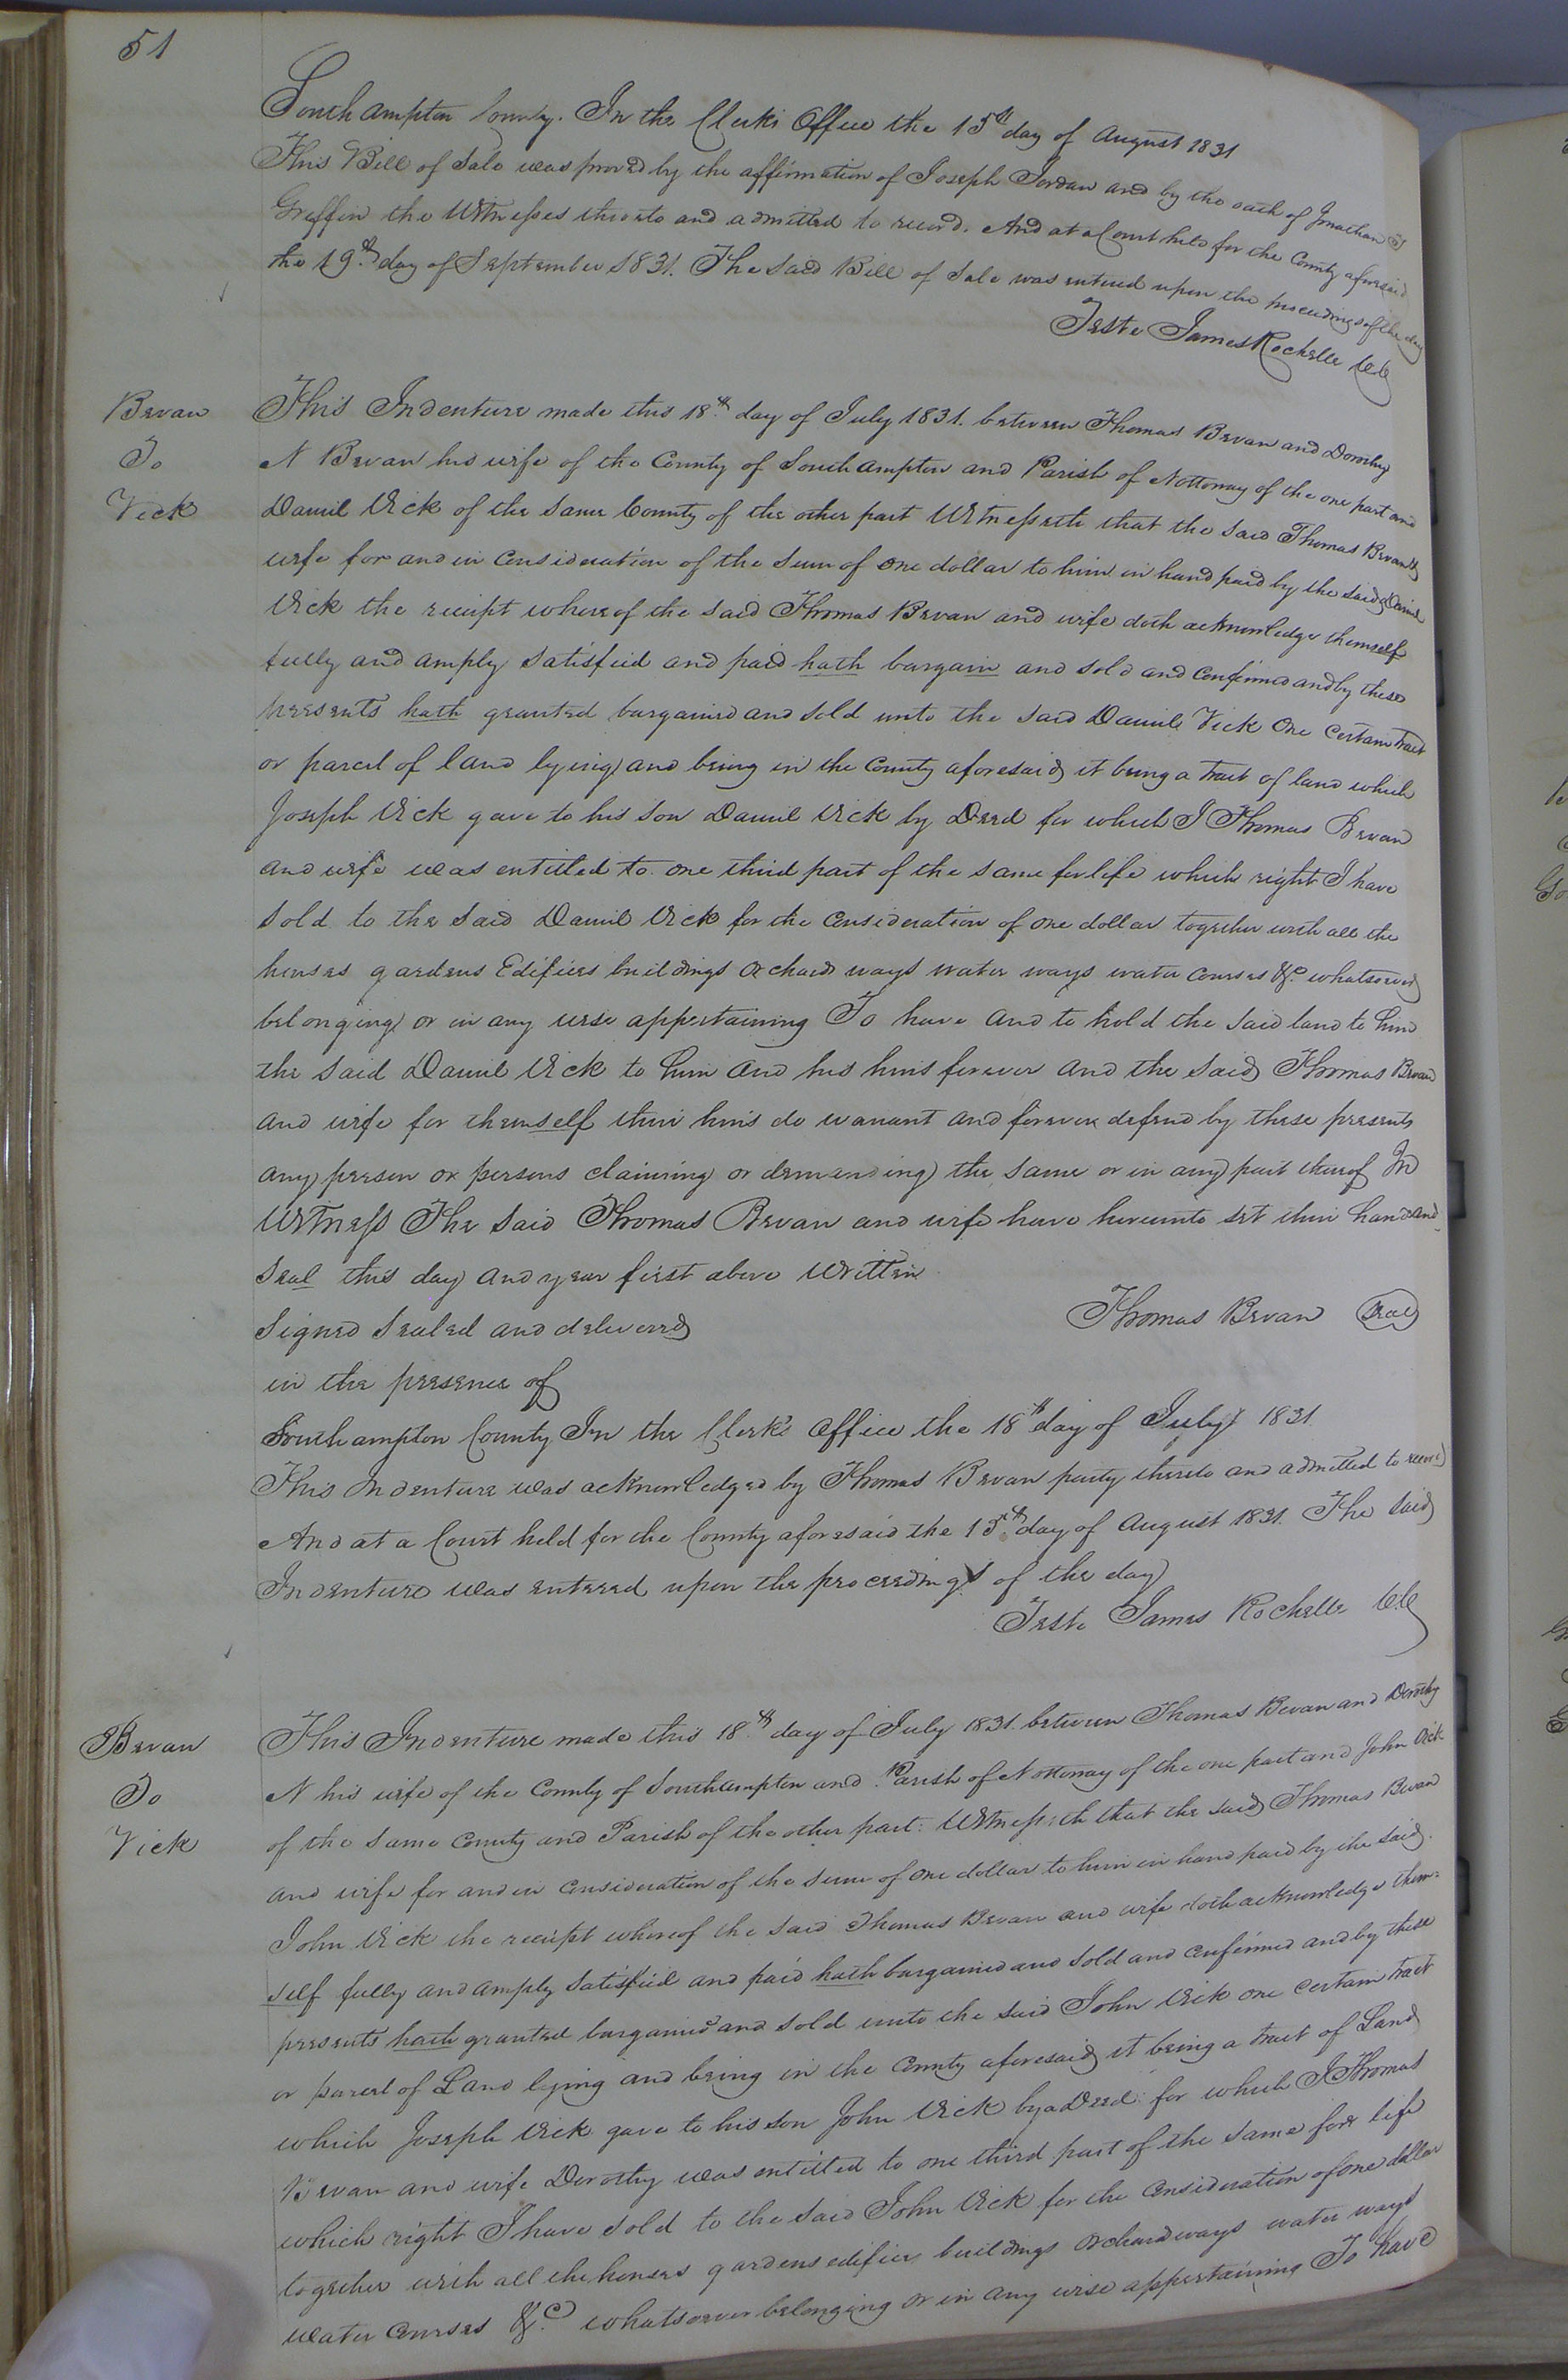 51
Southampton County. In the Clerks Office the 15th day of August 1831
This Bill of Sale was proved by the affirmation of Joseph Jordan and by the oath of Jonathan
Griffin the Witnesses thereto and admitted to record. And at a Court held for the County aforesaid
the 19th day of September 1831. The said Bill of Sale was entered upon the proceedings of the day
Teste James Rochelle
Bevan
To
Vick
This Indenture made this 18th day of July 1831. between Thomas Bevan and Dorothy
N Bevan his wife of the County of Southampton and Parish of Nottoway of the one part and
Daniel Vick of the same County of the other part Witnesseth that the said Thomas Bevan &
wife for and in consideration of the Sum of one dollar to him in hand paid by the said Daniel
Vick the receipt whereof the said Thomas Bevan and wife doth acknowledge themself
fully and amply satisfied and paid hath bargain and sold and confirmed and by these
presents hath granted bargained and sold unto the said Daniel Vick One certain tract
or parcel of land lying and being in the County aforesaid it being a tract of land which
Joseph Vick gave to his son Daniel Vick by Deed for which I Thomas Bevan
and wife was entitled to one third part of the same for life which right I have
sold to the said Daniel Vick for the consideration of one dollar together with all the
houses gardens Edifices buildings orchards ways water ways water courses &c whatsoever
belonging or in any wise appertaining To have and to hold the said land to him
the said Daniel Vick to him and his heirs forever and the said Thomas Bevan
and wife for themself their heirs do warrant and forever defend by these presents
any person or persons claiming or demanding the same or in any part thereof In
Witness The said Thomas Bevan and wife have hereunto set their hand and
seal this day and year first above written
Signed Sealed and delivered
Thomas Bevan Seal
in the presence of
Southampton County In the Clerk's Office the 18th day of July 1831
This Indenture was acknowledged by Thomas Bevan party thereto and admitted to record
And at a Court held for the County aforesaid the 15th day of August 1831. The said
Indenture was entered upon the proceedings of the day
Teste James Rochelle
Bevan
To
Vick
This Indenture made this 18th day of July 1831. between Thomas Bevan and Dorothy
N his wife of the County of Southampton and Parish of Nottoway of the one part and John Vick
of the same county and Parish of the other part: Witnesseth that the said Thomas Bevan
and wife for and in consideration of the sum of one dollar to him in hand paid by the said
John Vick the receipt whereof the said Thomas Bevan and wife doth acknowledge them-
self fully and amply satisfied and paid hath bargained and sold and confirmed and by these
presents hath granted bargained and sold unto the said John Vick one certain tract
or parcel of Land lying and being in the County aforesaid it being a tract of Land
which Joseph Vick gave to his son John Vick by a Deed for which I Thomas
Bevan and wife Dorothy was entitled to one third part of the same for life
which right I have sold to the said John Vick for the consideration of one dollar
together with all the houses gardens edifices buildings orchard ways water ways
water courses &c whatsoever belonging or in any wise appertaining To have